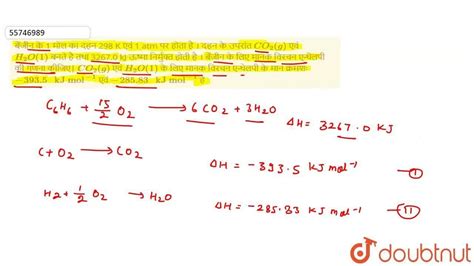 55746989
बेंजीन के 1 मोल का दहन 298 K एवं 1 atm पर होता है । दहन के उपरांत CO₂(g) एवं
H₂O(1) बनते है तथा 3267.0 kJ ऊष्मा निर्मुक्त होती है । बेंजीन के लिए मानक विरचन एन्थैल्पी
की गणना कीजिए| CO₂(g) एवं H₂O(1) के लिए मानक विरचन एन्थैल्पी के मान क्रमशः
-393.5 kJ mol⁻¹ एवं -285.83 kJ mol⁻¹ है
C₆H₆ + 15/2 O₂ → 6CO₂ + 3H₂O
ΔH = 3267.0 KJ
C+O₂ → CO₂
ΔH = -393.5 KJ mol⁻¹ - I
H₂+ 1/2 O₂ → H₂O
ΔH = -285.83 KJ mol⁻¹ - II
doubtnut